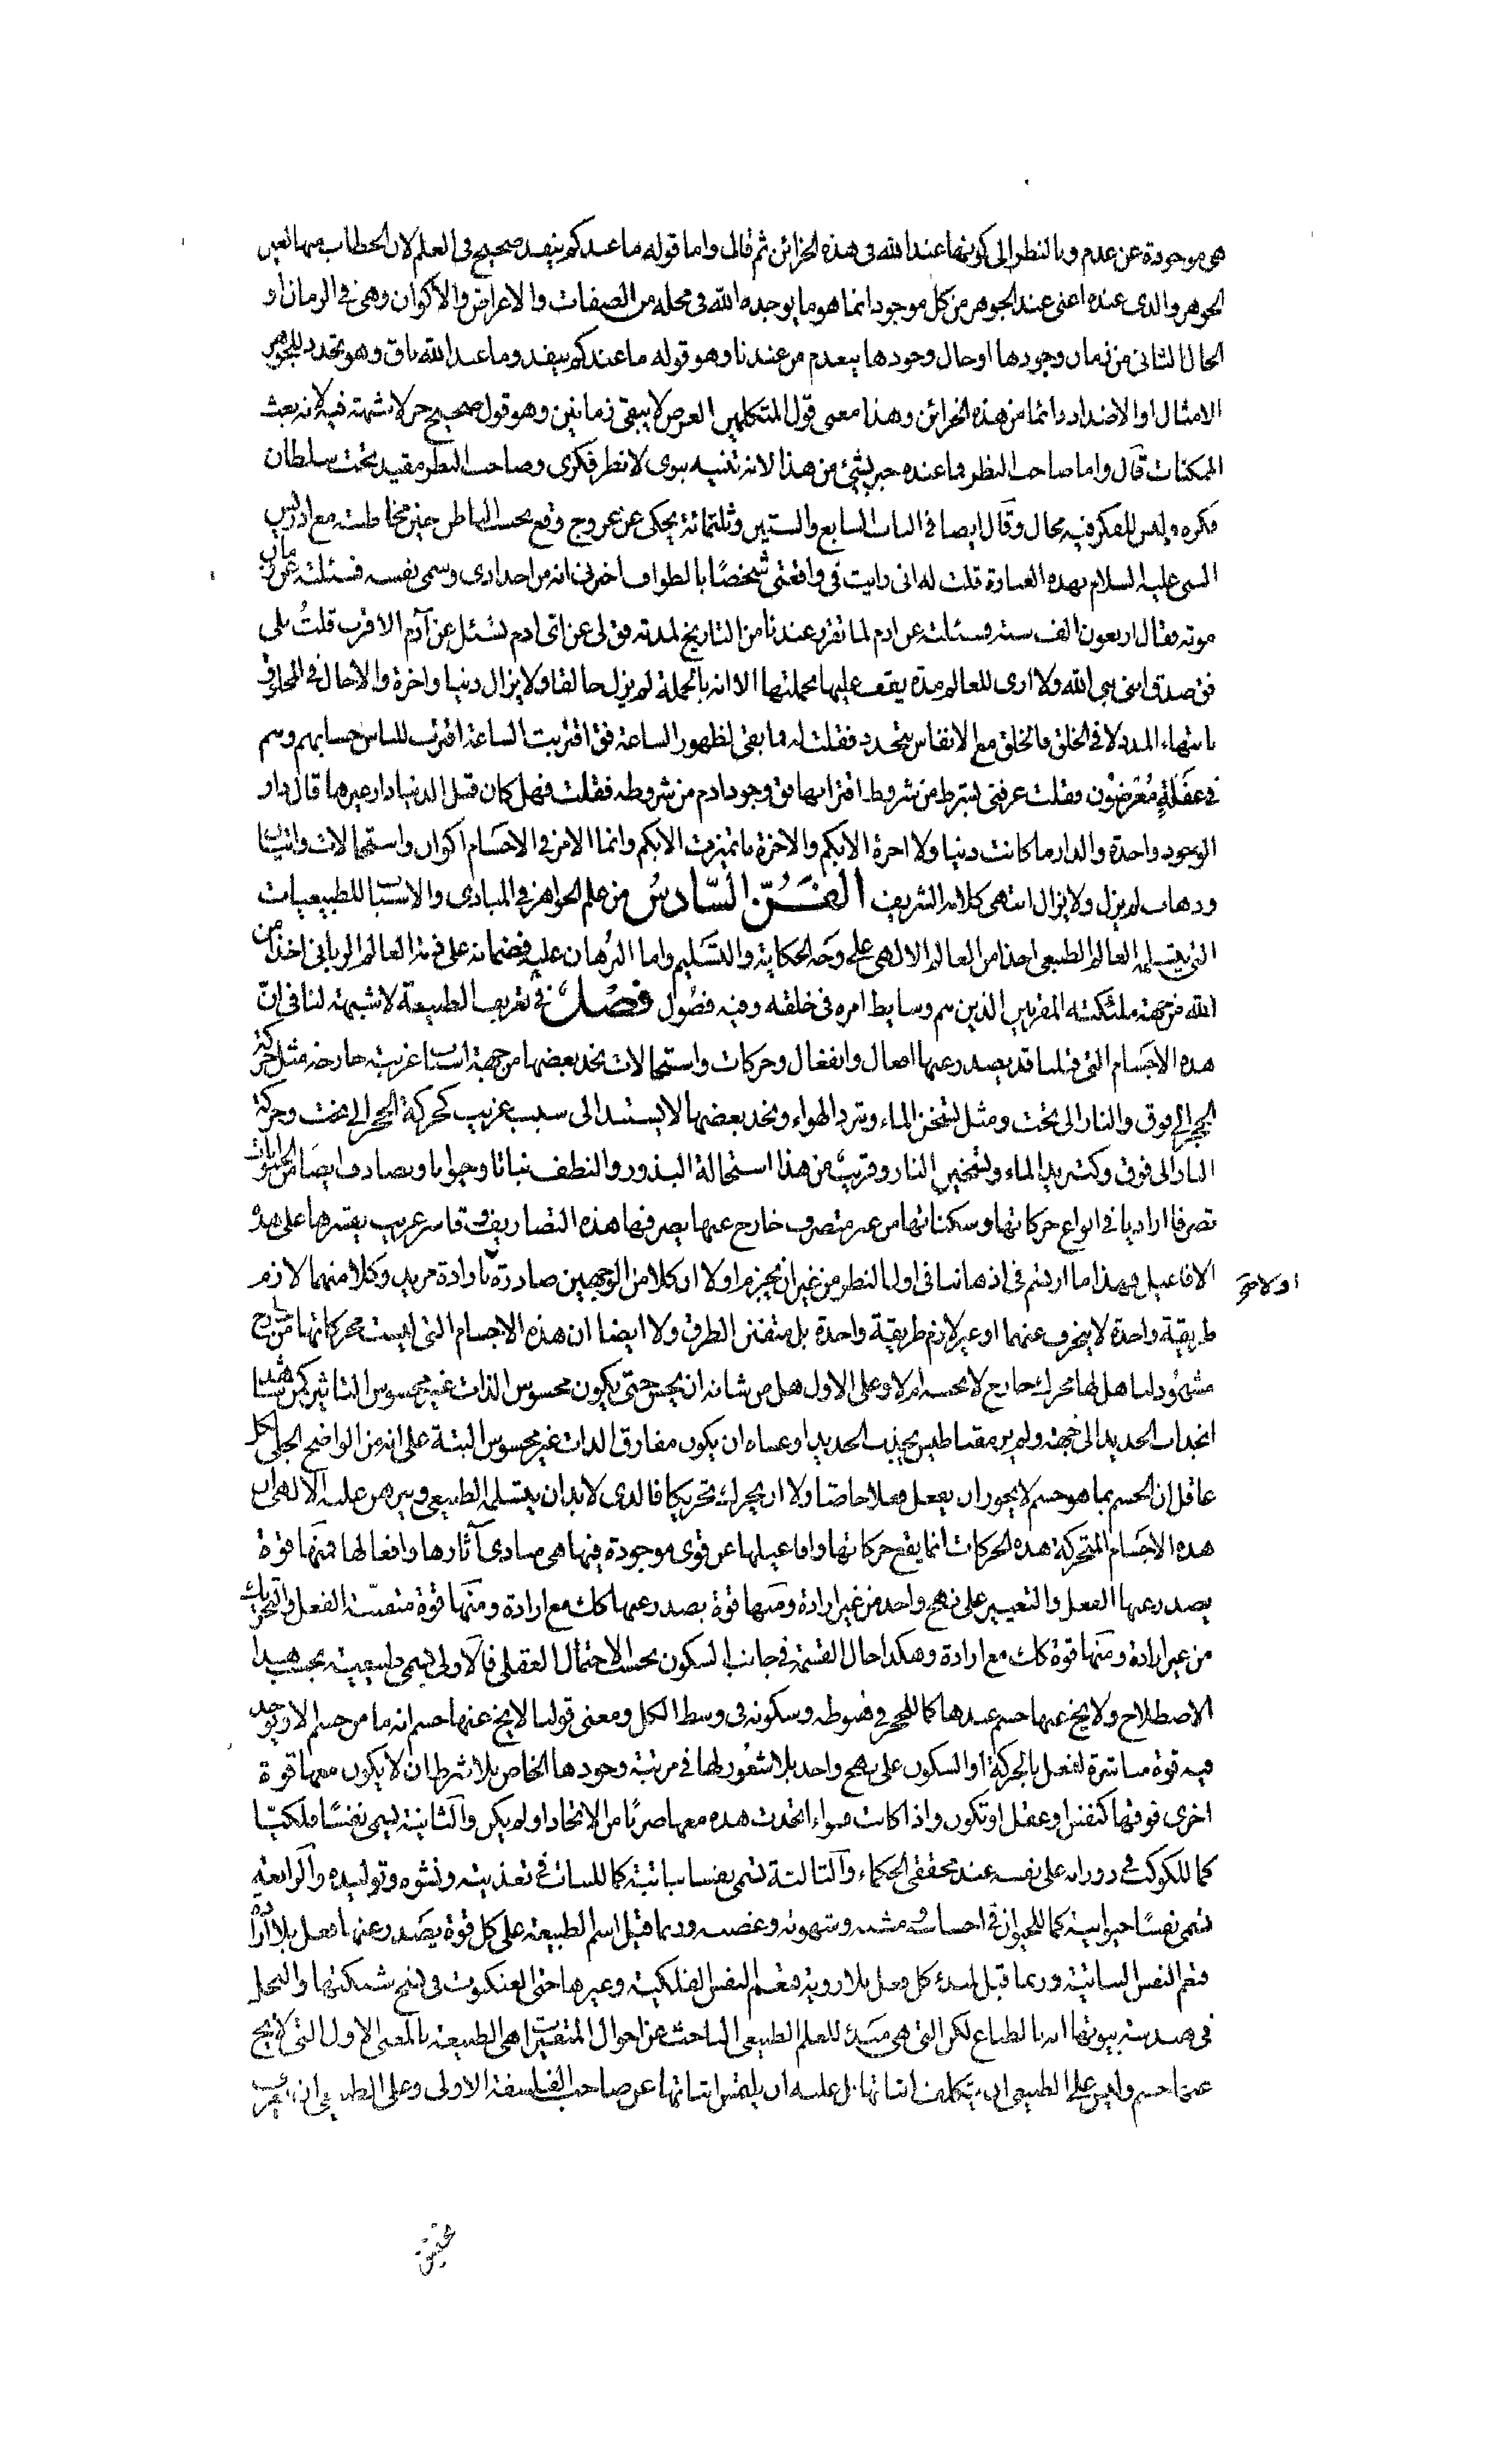 هى موجودة عن عدم وبالنظر الى كونها عند الله فى هذه الخزائن ثم قال واما قوله ما عندكم ينفد صحيح فى العلم لان الخطاب منها لعين
الجوهر والذى عنده اعنى عند الجوهر من كل موجود انما هو ما يوجده الله فى محله من الصفات والاعراض والاكوان وهى فى الزمان او
الحال الثانى من زمان وجودها او حال وجودها ينعدم من عندنا وهو قوله ما عندكم ينفد وما عند الله باق وهو يجدد للجوهر
الامثال او الاضداد دائما من هذه الخزائن وهذا معنى قول المتكلمين العرض لا يبقى زمانين وهو قول صحيح حر لا شبهة فيه لانه بعث
الممكنات قال واما صاحب النظر فما عنده خبر بشئ من هذا لانه تنبيه نبوى لا نظر فكرى وصاحب النظر مقيد تحت سلطان
فكره وليس للفكر فيه مجال وقال ايضا فى الباب السابع والستين وثلثمائة يحكى عن عروج وقع بحسب الباطن حين مخاطبته مع ادريس
النبى عليه السلام بهذه العبارة قلت له انى رايت فى واقعتى شخصًا بالطواف اخبرنى انه من اجدادى وسمى نفسه فسئلته عن زمان
موته فقال اربعون الف سنة وسئلته عن ادم لما تقرر عندنا من التاريخ لمدته فق لى عن اى ادم تسئل عن آدم الاقرب قلتُ بلى
فق صدق انى نبى الله ولا ارى للعالم مدة يقف عليها بجملتها الا انه بالجملة لم يزل خالقا ولا يزال دنيا واخرة والآجال فى المخلوق
بانتهاء المدد لا فى الخلق فالخلق مع الانفاس يتجدد فقلت له فما بقى لظهور الساعة فق اقتربت الساعة اقترب للناس حسابهم وهم
فى غفلةٍ مُعرضون فقلت عرفنى بشرط من شروط اقترابها فق وجود ادم من شروطه فقلت فهل كان قبل الدنيا دار غيرها قال دار
الوجود واحدة والدار ما كانت دنيا ولا اخرة الا بكم والاخرة ما تميزت الا بكم وانما الامر فى الاجسام اكوان واستحالات واتيان
وذهاب لم يزل ولا يزال انتهى كلامه الشريف الفنّ السّادسُ من علم الجواهر فى المبادى والاسباب للطبيعيات
التى يتسلمه العالم الطبيعى اخذا من العالم الالهى على وجه الحكاية والتسليم واما البرهان عليه فضمانه على ذمة العالم الربانى اخذا من
الله من جهة ملئكته المقربين الذين هم وسايط امره فى خلقه وفيه فصُول فصْل فى تعريف الطبيعة لا شبهة لنا فى انّ
هذه الاجسام التى قبلنا قد يصدر عنها افعال وانفعال وحركات واستحالات نجد بعضها من جهة اسباب غريبة خارجة مثل حركة
الحجر الى فوق والنار الى تحت ومثل تسخن الماء وتبرد الهواء ونجد بعضها لا يستند الى سبب غريب كحركة الحجر الى تحت وحركة
النار الى فوق وكتبريد الماء وتسخين النار وقريبٌ من هذا استحالة البذور والنطف نباتا وحيوانا ونصادف ايضا من الحيوانات
تصرفا اراديا فى انواع حركاتها وسكناتها من غير متصرف خارج عنها يصرفها هذه التصاريف وقاسر غريب يقسرها على هذه
الافاعيل فهذا ما ارتسم فى اذهاننا فى اول النظر من غير ان نجزم اولا ان كلا من الوجهين صادرة بارادة مريد وكلا منهما لازم
طريقة واحدة لا ينحرف عنهما او غير لازم طريقة واحدة بل متفنن الطرق ولا ايضا ان هذه الاجسام التى ليست محركاتها من خارج
مشهُودا لنا هل لها محرك خارج لا نحسه ام لا وعلى الاول هل من شانه ان يحس حتى يكون محسوس الذات غير محسوس التاثير كمن شاهد
انجذاب الحديد الى جهة ولم ير مقناطيس يجذب الحديد او عساه ان يكون مفارق الذات غير محسوس البتة على انه من الواضح الجلى لكل
عاقل ان الجسم بما هو جسم لا يجوز ان يفعل فعلا خاصّا ولا ان يحرك تحريكا فالذى لا بد ان يتسلمه الطبيعى ويبرهن عليه الالهى ان
هذه الاجسام المتحركة هذه الحركات انما يقع حركاتها وافاعيلها عن قوى موجودة فيها هى مبادى آثارها وافعالها فمنها قوة
يصدر عنها الفعل والتغيير على نهج واحد من غير ارادة ومنها قوة يصدر عنها كك مع ارادة ومنها قوة متفننة الفعل والتحريك
من غير ارادة ومنها قوة كك مع ارادة وهكذا حال القسمة فى جانب السكون بحسب الاحتمال العقلى فالاولى تسمى طبيعية بحسب هذا
الاصطلاح ولا يخ عنها جسم عندها كما للحجر فى هبوطه وسكونه فى وسط الكل ومعنى قولنا لا يخ عنها جسم انه ما من جسم الا ويوجد
فيه قوة مباشرة لفعل بالحركة او السكون على نهج واحد بلا شعور لها فى مرتبة وجودها الخاص بلا شرط ان لا يكون معها قوة
اخرى فوقها كنفس او عقل او تكون واذا كانت سواء اتحدت هذه معها ضربًا من الاتحاد او لم يكن والثانية تسمى نفسًا فلكيّا
كما للكوكب فى دورانه على نفسه عند محققى الحكماء والثالثة تسمى نفسا نباتية كما للنبات فى تغذيته ونشوه وتوليده والرابعة
تسمى نفسًا حيوانية كما للحيوان فى احساسه ومشيه وشهوته وغضبه وربما قيل اسم الطبيعة على كل قوة يصدر عنها فعل بلا ارادة
فتعم النفس النباتية وربما قيل لمبدء كل فعل بلا روية فتعم النفس الفلكية وغيرها حتى العنكبوت فى نسج شبكتها والنحل
فى هندسة بيوتها انه بالطباع لكن التى هى مبدء للعلم الطبيعى الباحث عن احوال المتغيرات هى الطبيعة بالمعنى الاول التى لا يخ
عنها جسم وليس على الطبيعى ان يتكلف اثباتها بل عليه ان يلتمس اثباتها عن صاحب الفلسفة الاولى وعلى الطبيعى ان